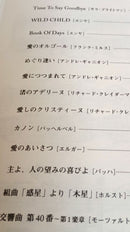 Time To Say Goodbye [サラ・ブライトマン]
WILD CHILD [エンヤ]
Book Of Days [エンヤ]
愛のオルゴール [フランク・ミルス]
めぐり逢い [アンドレ・ギャニオン]
愛につつまれて [アンドレ・ギャニオン]
渚のアデリーヌ [リチャード・クレイダーマ
愛しのクリスティーヌ [リチャード・クレ
カノン [パッヘルベル]
愛のあいさつ [エルガー]
主よ、人の望みの喜びよ [バッハ]
組曲「惑星」より「木星」[ホルスト]
交響曲 第40番~第1楽章 [モーツァルト